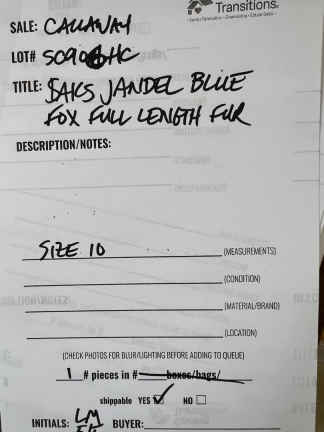 Transitions.
SALE: CALLAWAY
LOT# 50906HC
TITLE: SAKS JANDEL BLUE
FOX FULL LENGTH FUR
DESCRIPTION/NOTES:
SIZE 10 (MEASUREMENTS)
(CONDITION)
(MATERIAL/BRAND)
(LOCATION)
(CHECK PHOTOS FOR BLUR/LIGHTING BEFORE ADDING TO QUEUE)
1 # pieces in # boxes/bags/
shippable YES NO
INITIALS: LM BUYER: